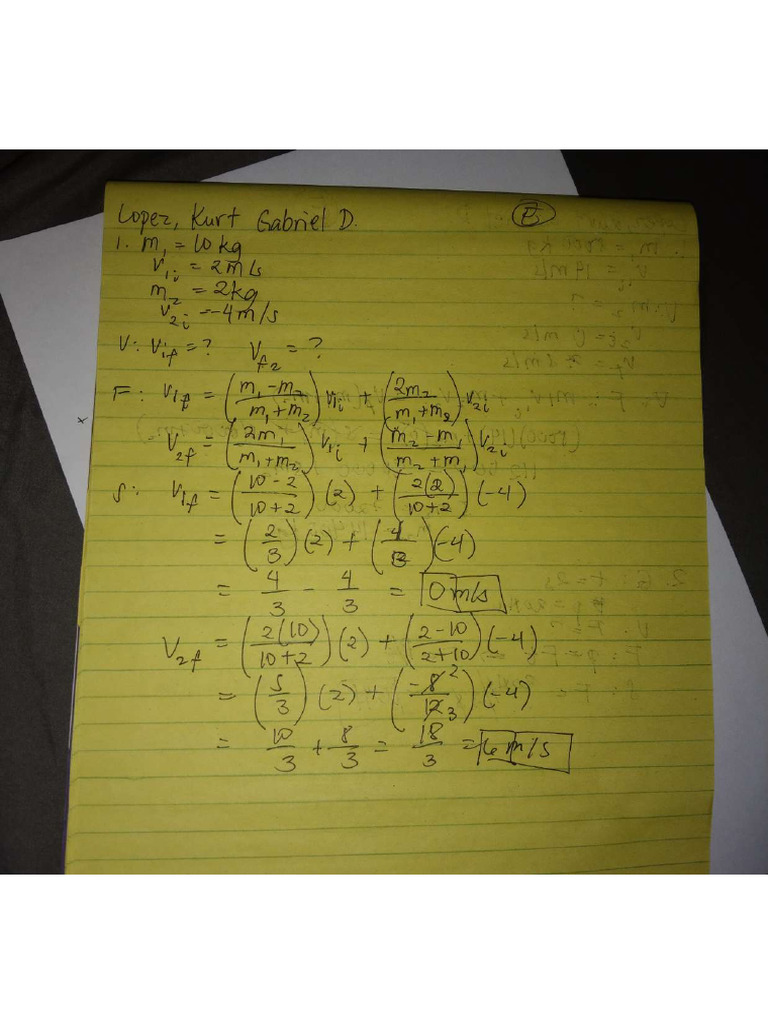 Lopez, Kurt Gabriel D. B
1. m₁ = 10 kg
v₁ᵢ = 2 m/s
m₂ = 2kg
v₂ᵢ = -4 m/s
U: V₁f = ? Vf₂ = ?
F: V₁f = (m₁ - m₂ / m₁ + m₂) v₁ᵢ + (2m₂ / m₁ + m₂) v₂ᵢ
V₂f = (2m₁ / m₁ + m₂) v₁ᵢ + (m₂ - m₁ / m₂ + m₁) v₂ᵢ
S: V₁f = (10 - 2 / 10 + 2) (2) + (2(2) / 10 + 2) (-4)
= (2/3) (2) + (1/3) (-4)
= 4/3 - 4/3 = 0 m/s
V₂f = (2(10) / 10 + 2) (2) + (2 - 10 / 2 + 10) (-4)
= (5/3) (2) + (-8 2 / 12 3) (-4)
= 10/3 + 8/3 = 18/3 = 6 m/s